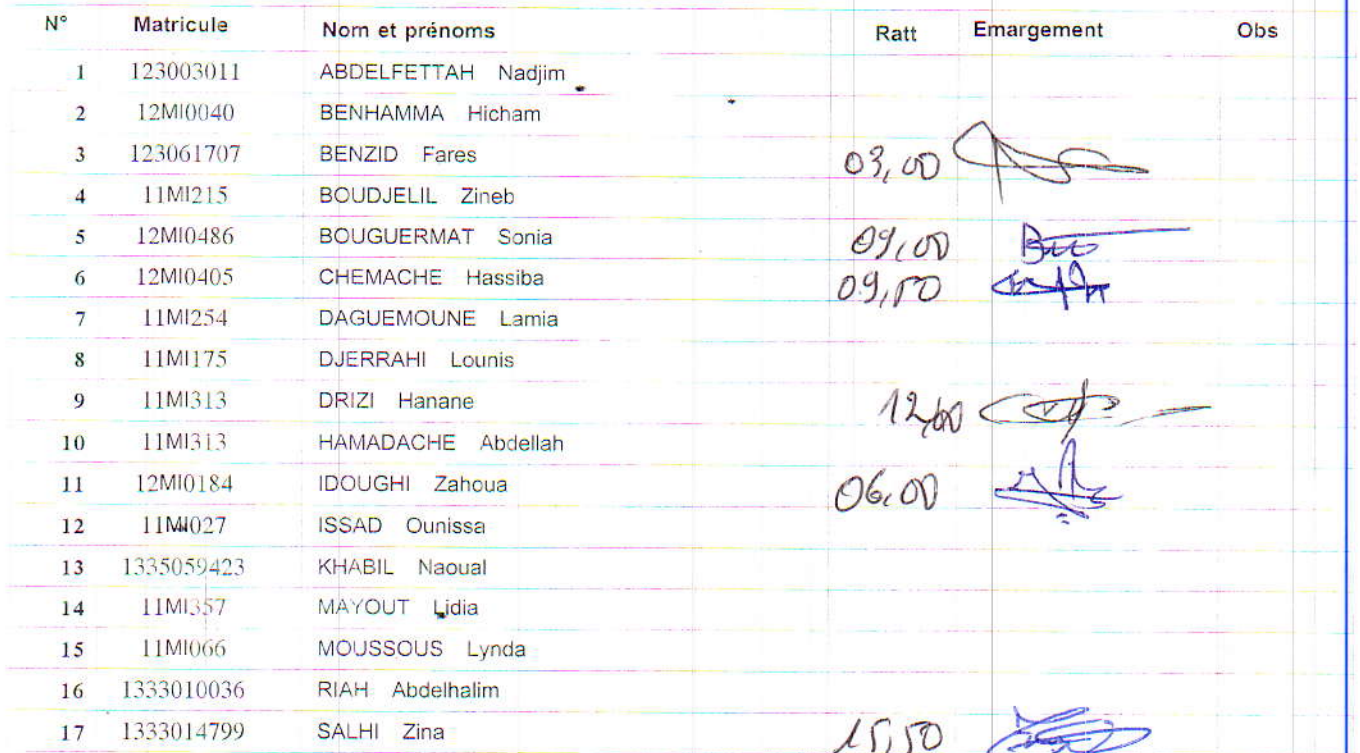 N° Matricule Nom et prénoms Ratt Emargement Obs
1 123003011 ABDELFETTAH Nadjim
2 12MI0040 BENHAMMA Hicham
3 123061707 BENZID Fares 03,00
4 11MI215 BOUDJELIL Zineb
5 12MI0486 BOUGUERMAT Sonia 09,00
6 12MI0405 CHEMACHE Hassiba 09,50
7 11MI254 DAGUEMOUNE Lamia
8 11MI175 DJERRAHI Lounis
9 11MI313 DRIZI Hanane 12,00
10 11MI313 HAMADACHE Abdellah
11 12MI0184 IDOUGHI Zahoua 06,00
12 11MI027 ISSAD Ounissa
13 1335059423 KHABIL Naoual
14 11MI357 MAYOUT Lidia
15 11MI066 MOUSSOUS Lynda
16 1333010036 RIAH Abdelhalim
17 1333014799 SALHI Zina 15,50